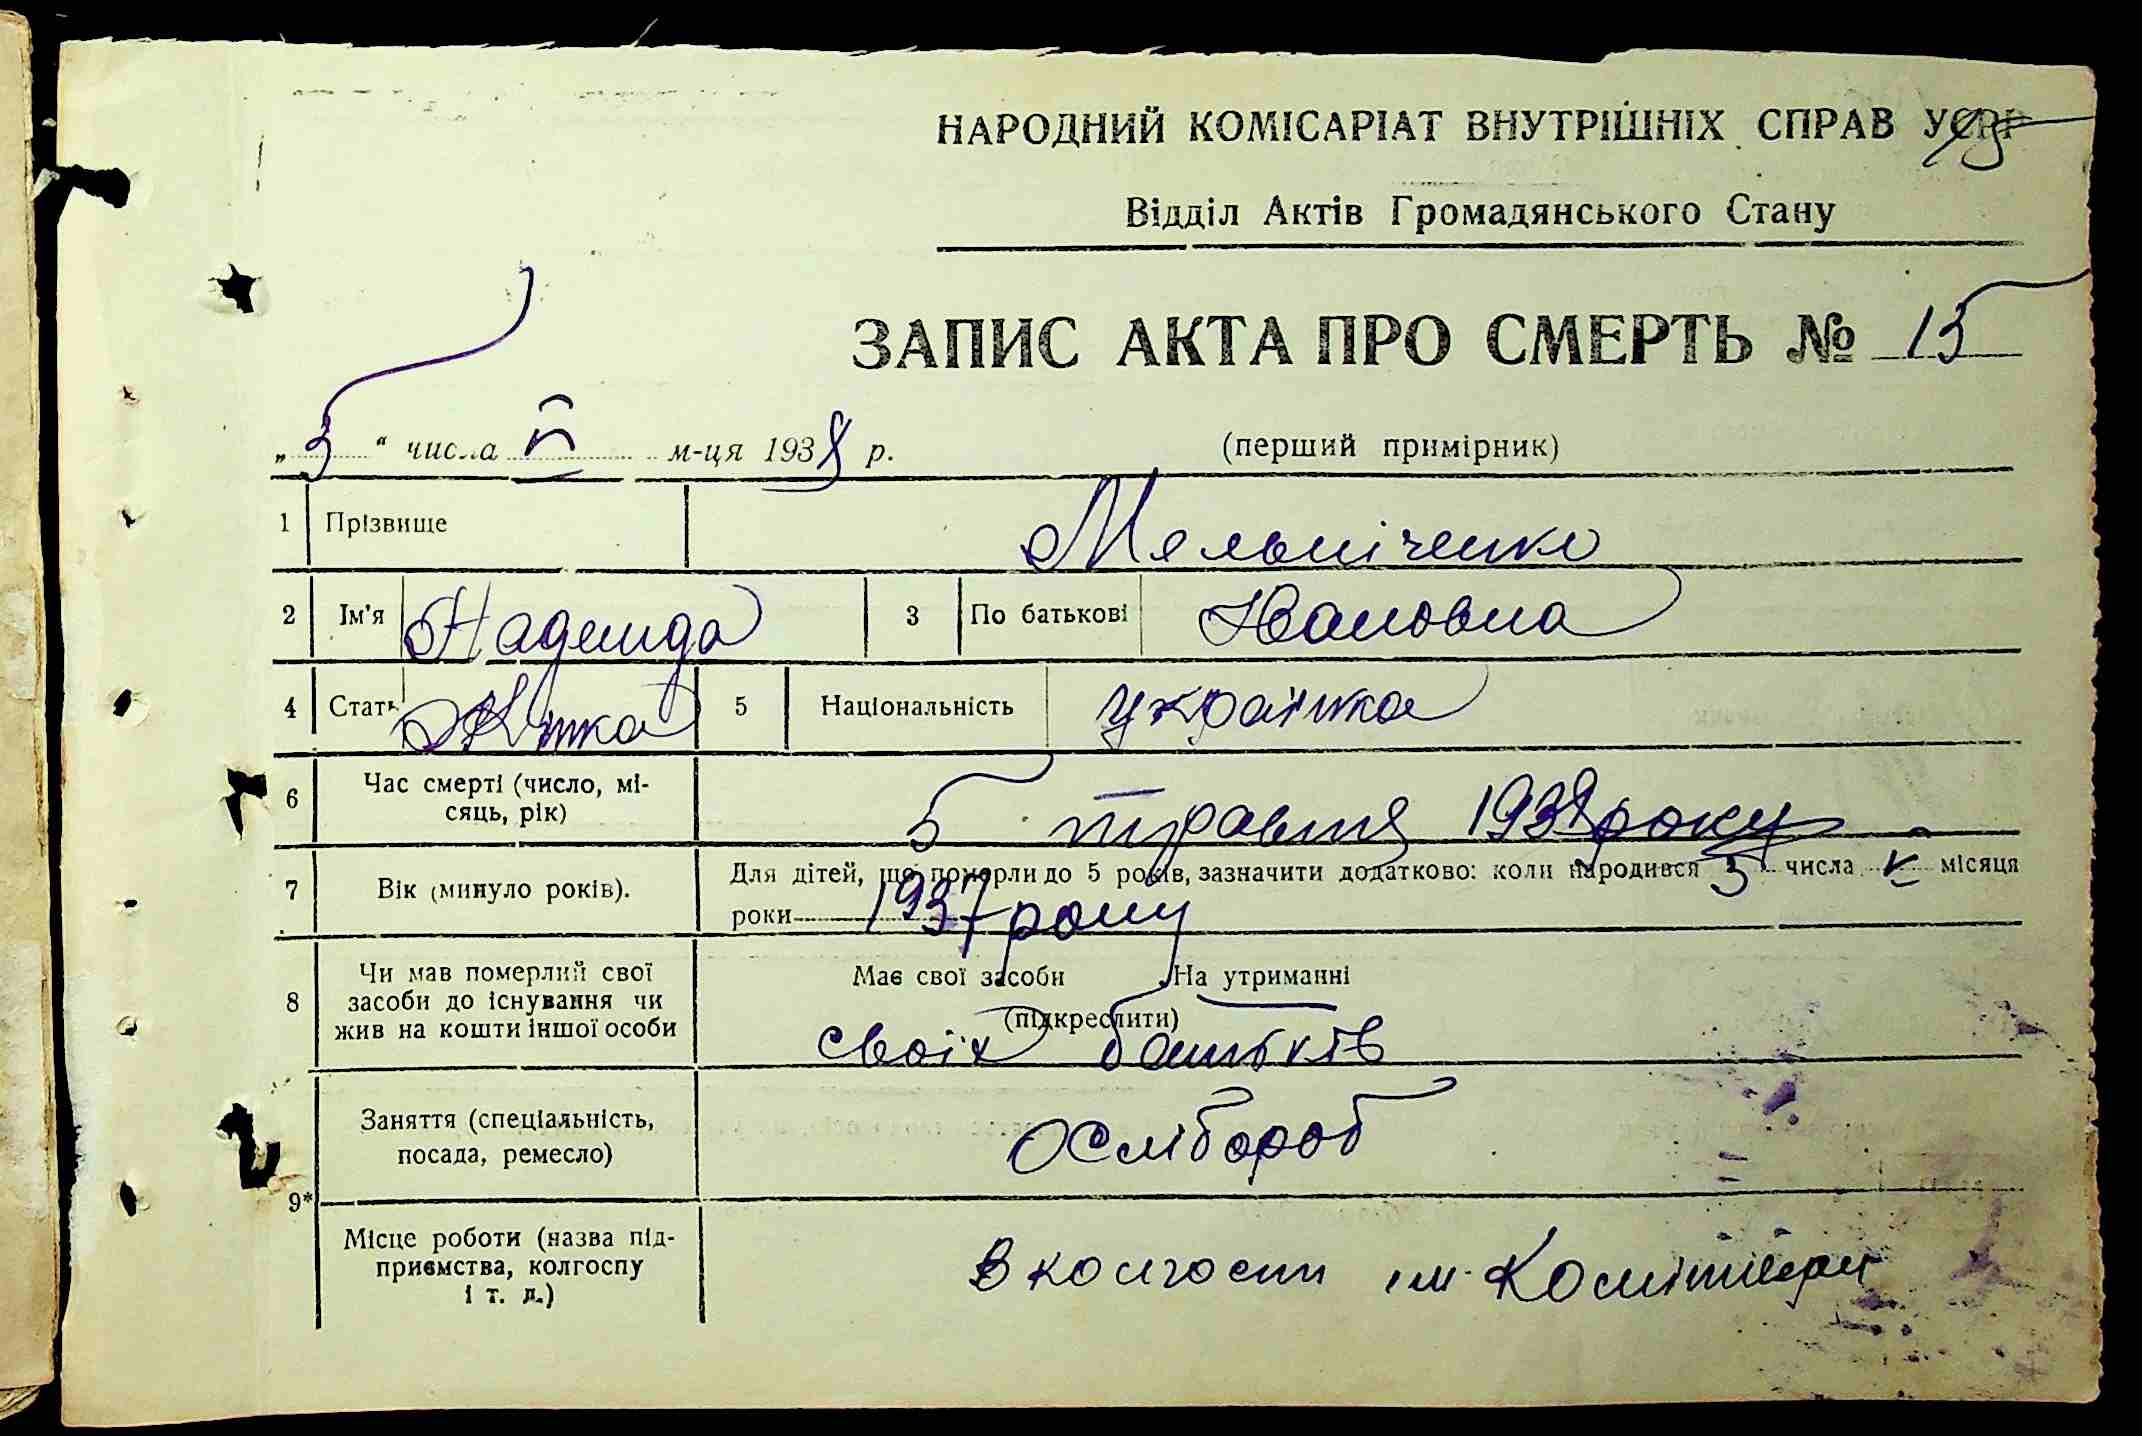 НАРОДНИЙ КОМІСАРІАТ ВНУТРІШНІХ СПРАВ УСРР
Відділ Актів Громадянського Стану
ЗАПИС АКТА ПРО СМЕРТЬ № 15
„ 5 “ числа V м-ця 1938 р. (перший примірник)
1 Прізвище Мельніченко
2 Ім'я Надежда 3 По батькові Івановна
4 Стать Жінка 5 Національність Українка
6 Час смерті (число, мі-
сяць, рік) 5 травня 1938 року
7 Вік (минуло років). Для дітей, що померли до 5 років, зазначити додатково: коли народився 5 числа V місяця
роки 1937 року
8 Чи мав померлий свої
засоби до існування чи
жив на кошти іншої особи
Має свої засоби На утриманні
(підкреслити)
своїх батьків
9* Заняття (спеціальність,
посада, ремесло)
Місце роботи (назва під-
приємства, колгоспу
і т. д.)
в колгоспі ім. Комінтерн